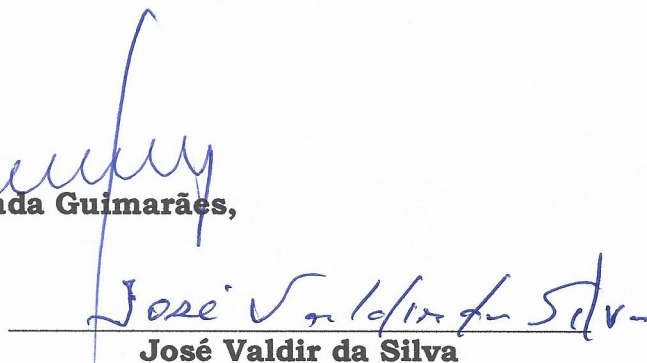 nda Guimarães,
José Valdir da Silva
José Valdir da Silva